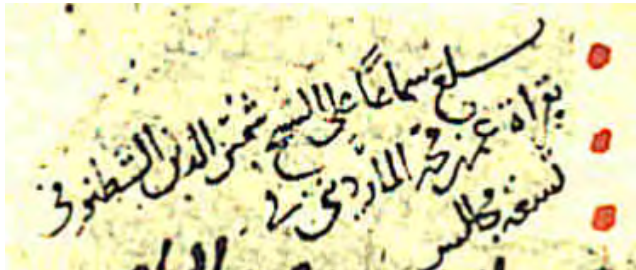 بلغ سماعا على الشيخ شمس الدين الشطنوفي
بقراءة عمر بن محمد المارديني في
تسعة مجالس